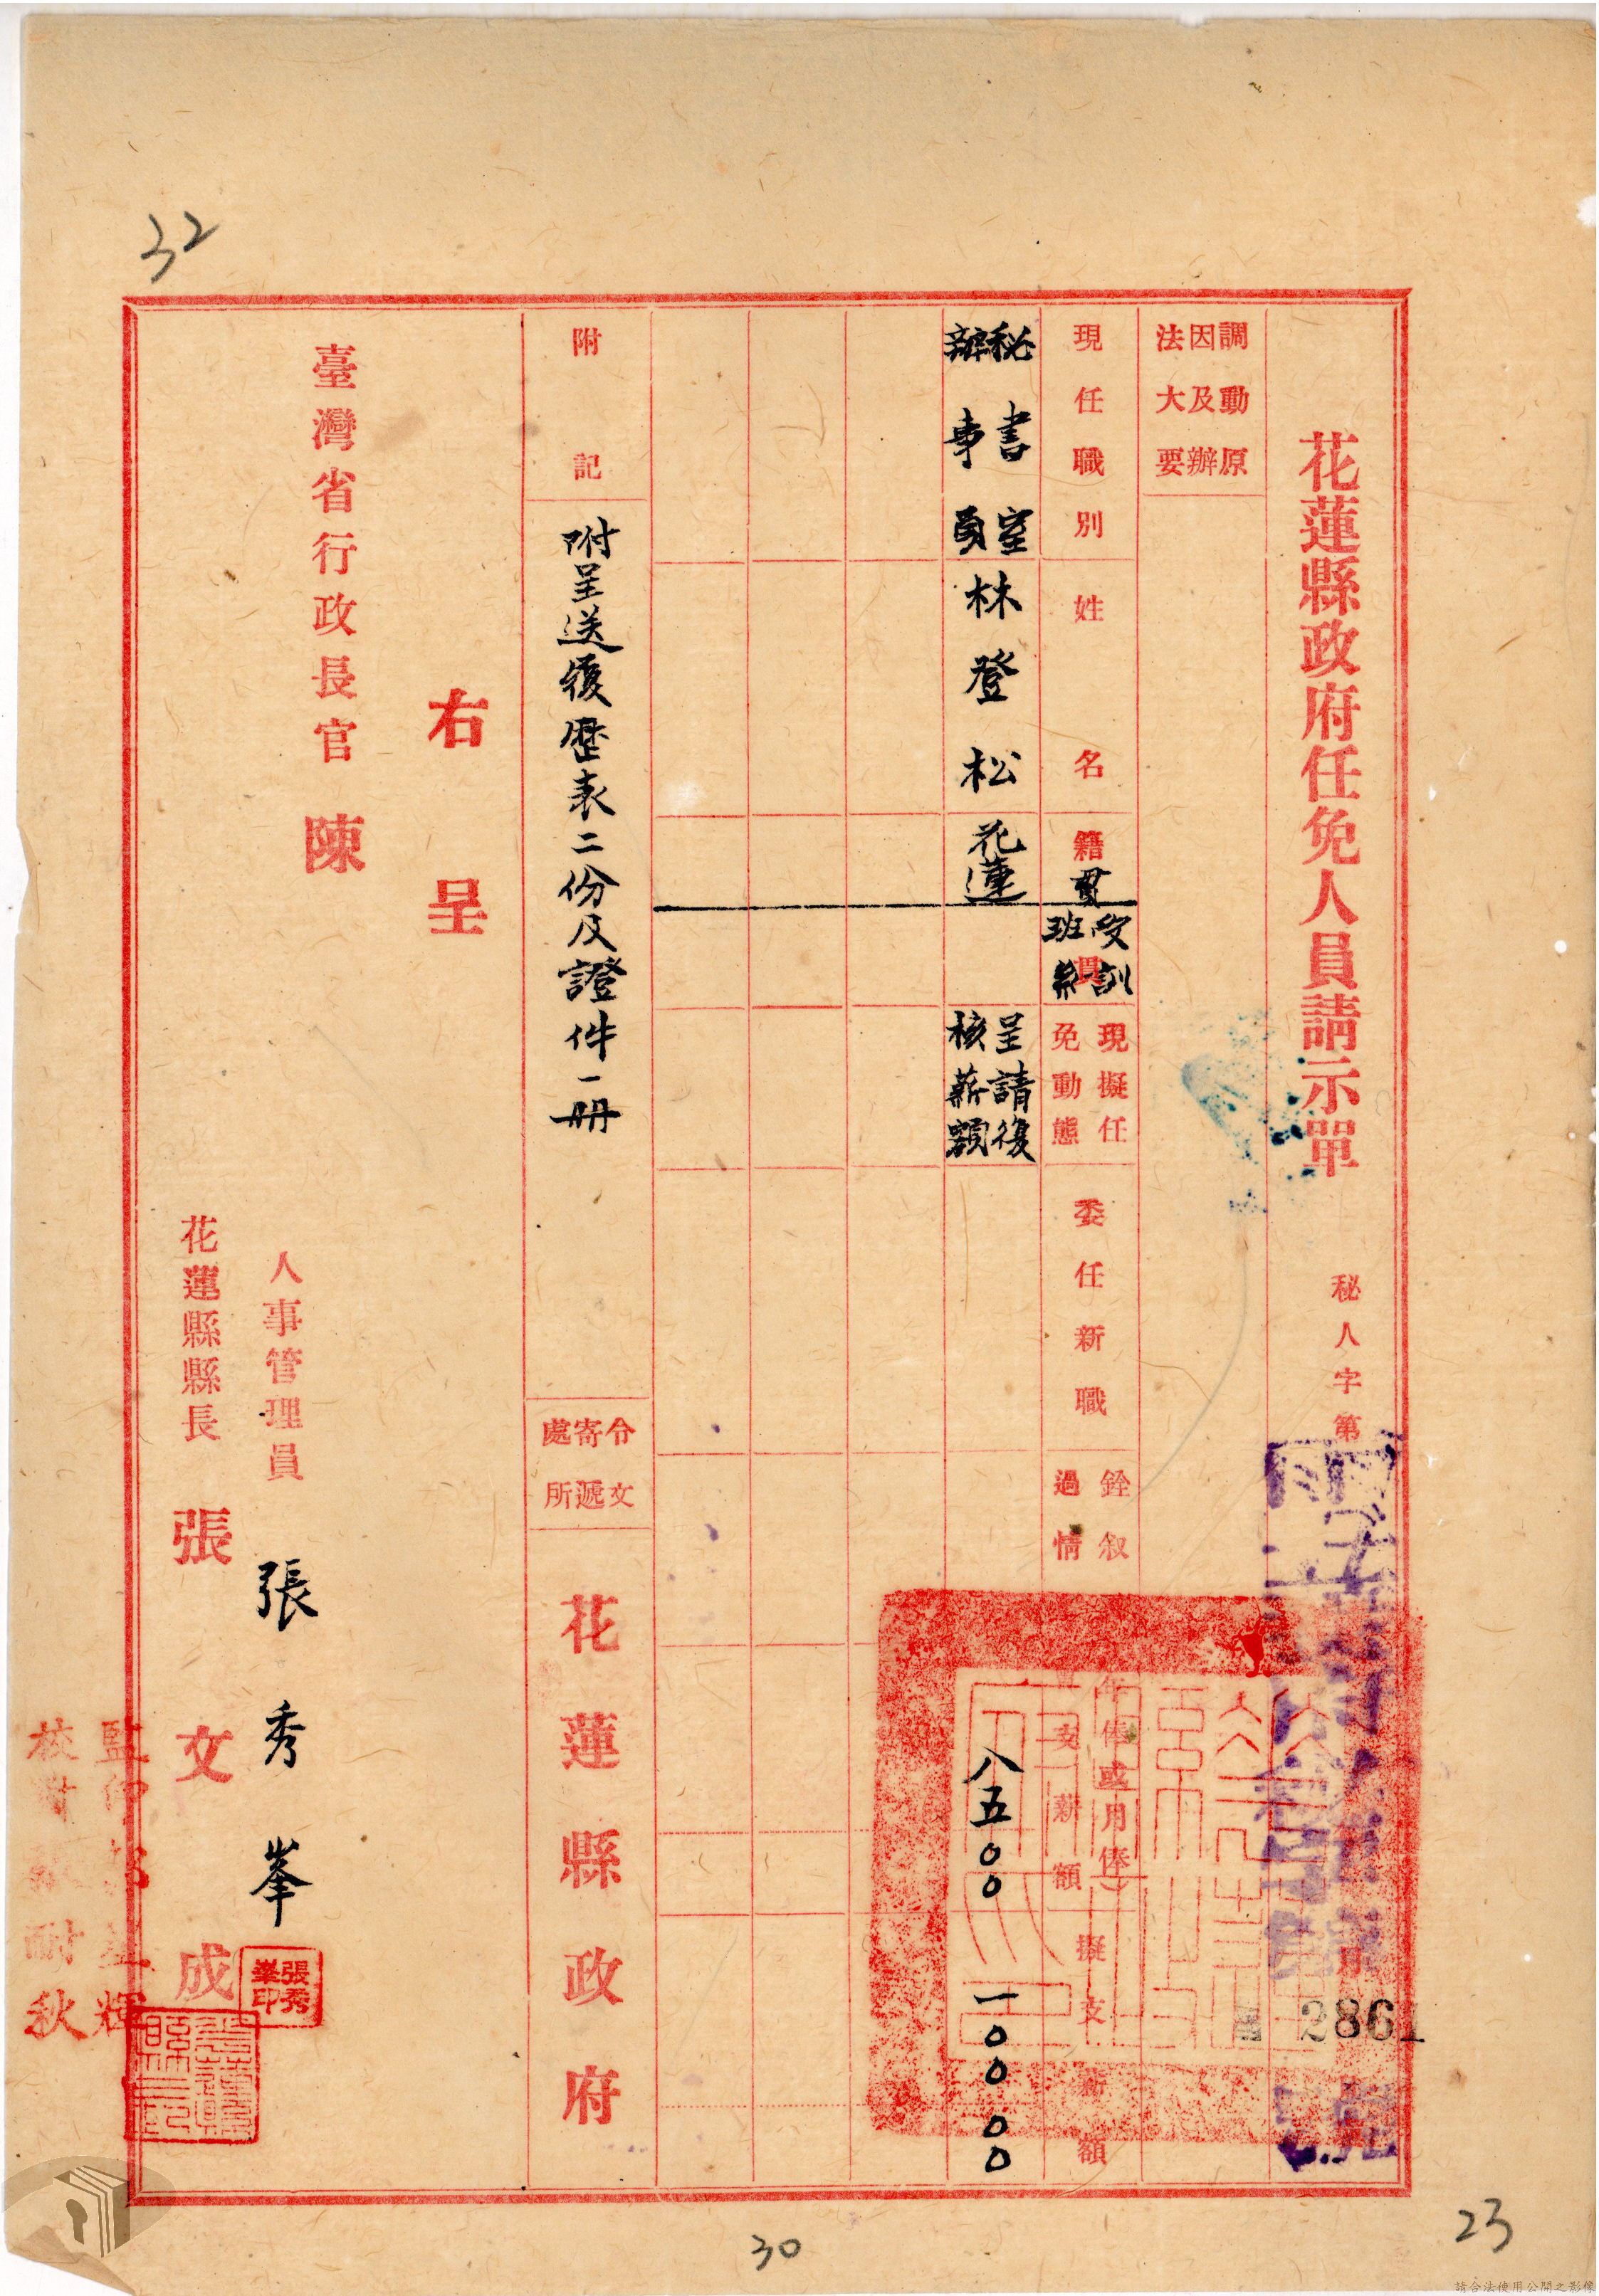 32
花蓮縣政府任免人員請示單
秘人字第
2861
號
調動原
因及辦
法大要
現任職別
姓名
籍貫
受訓
班系
現擬任
免動態
委任新職
銓叙
過情
年俸或月俸
支薪額
擬支薪額
秘書室
辦事員
林登松
花蓮
呈請復
核薪額
八五00
一00 00
附記
附呈送履歷表二份及證件一册
令文
寄遞
處所
花蓮縣政府
右呈
臺灣省行政長官 陳
人事管理員 張秀峯
張秀
峯印
花蓮縣縣長 張文成
監印
輝
校對
耐秋
30
23
請合法使用公開之影像